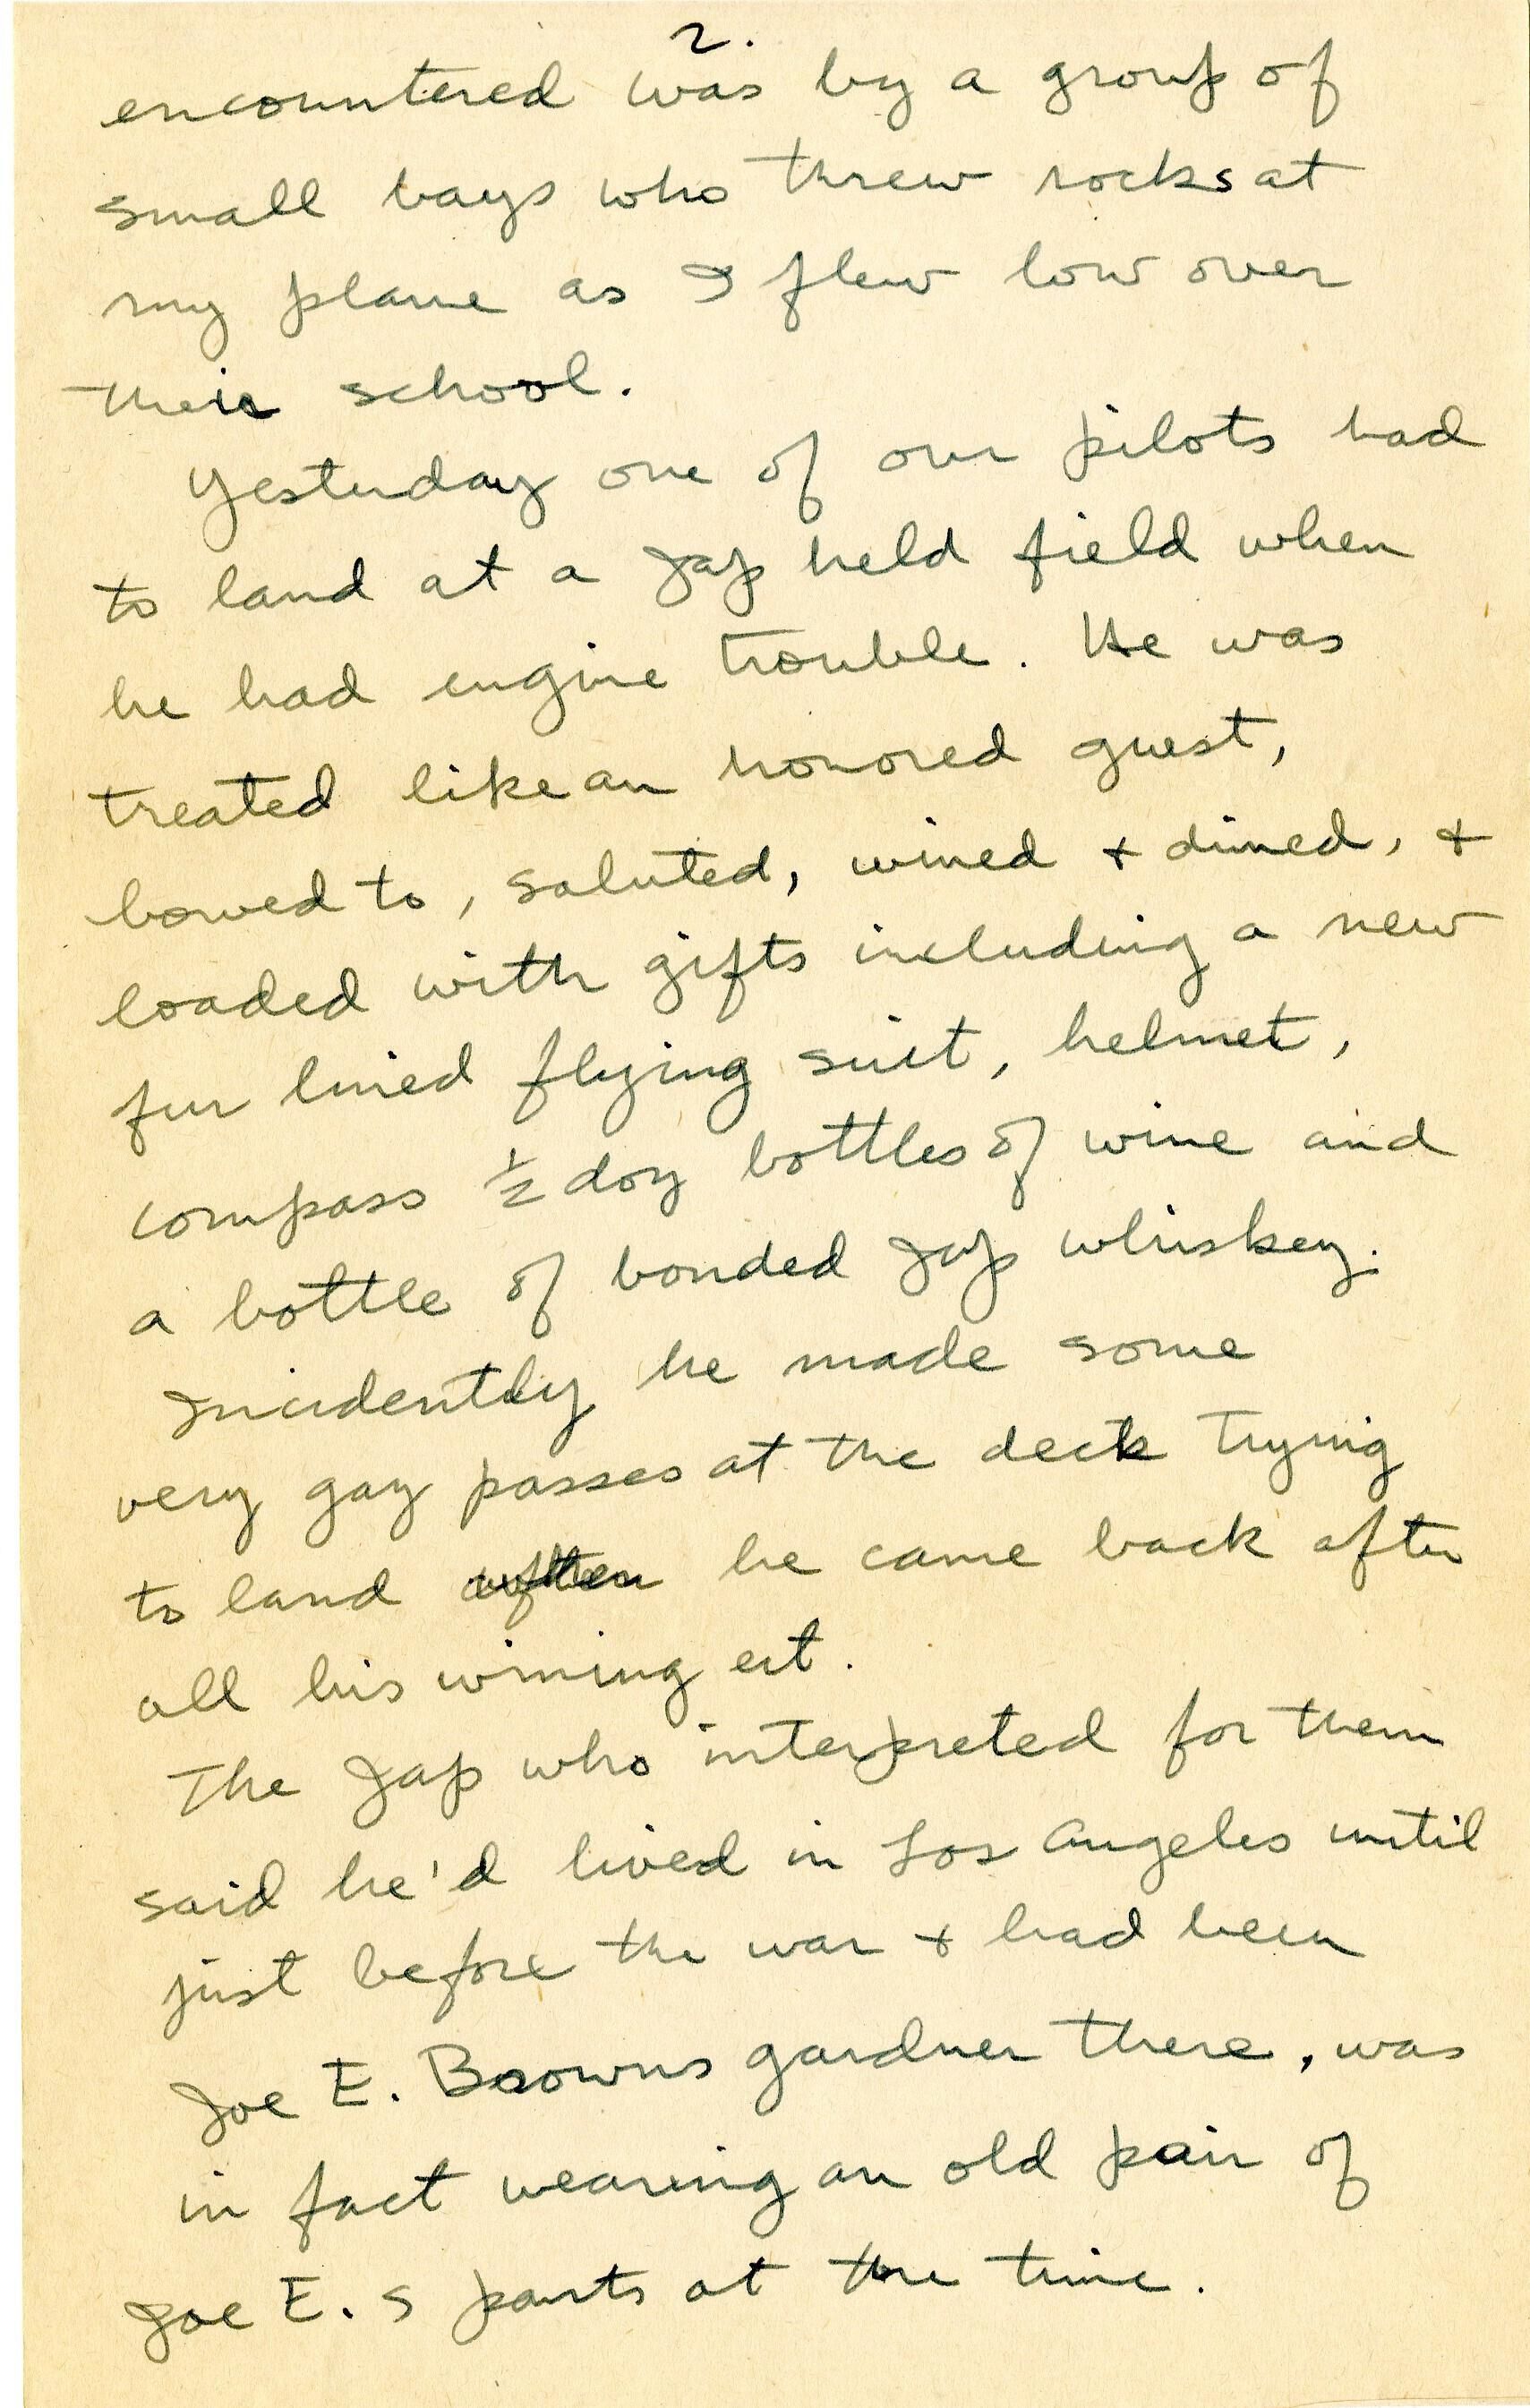 2.
encountered was by a group of
small boys who threw rocks at
my plane as I flew low over
their school.
Yesterday one of our pilots had
to land at a Jap held field when
he had engine trouble. He was
treated like an honored guest,
bowed to, saluted, wined + dined, +
loaded with gifts including a new
fur lined flying suit, helmet,
compass ½ doz bottles of wine and
a bottle of bonded Jap whiskey.
Incidently he made some
very gay passes at the deck trying
to land he came back after
all his wining ect.
The Jap who interpreted for them
said he'd lived in Los Angeles until
just before the war + had been
Joe E. Browns gardner there, was
in fact wearing an old pair of
Joe E. s pants at the time.